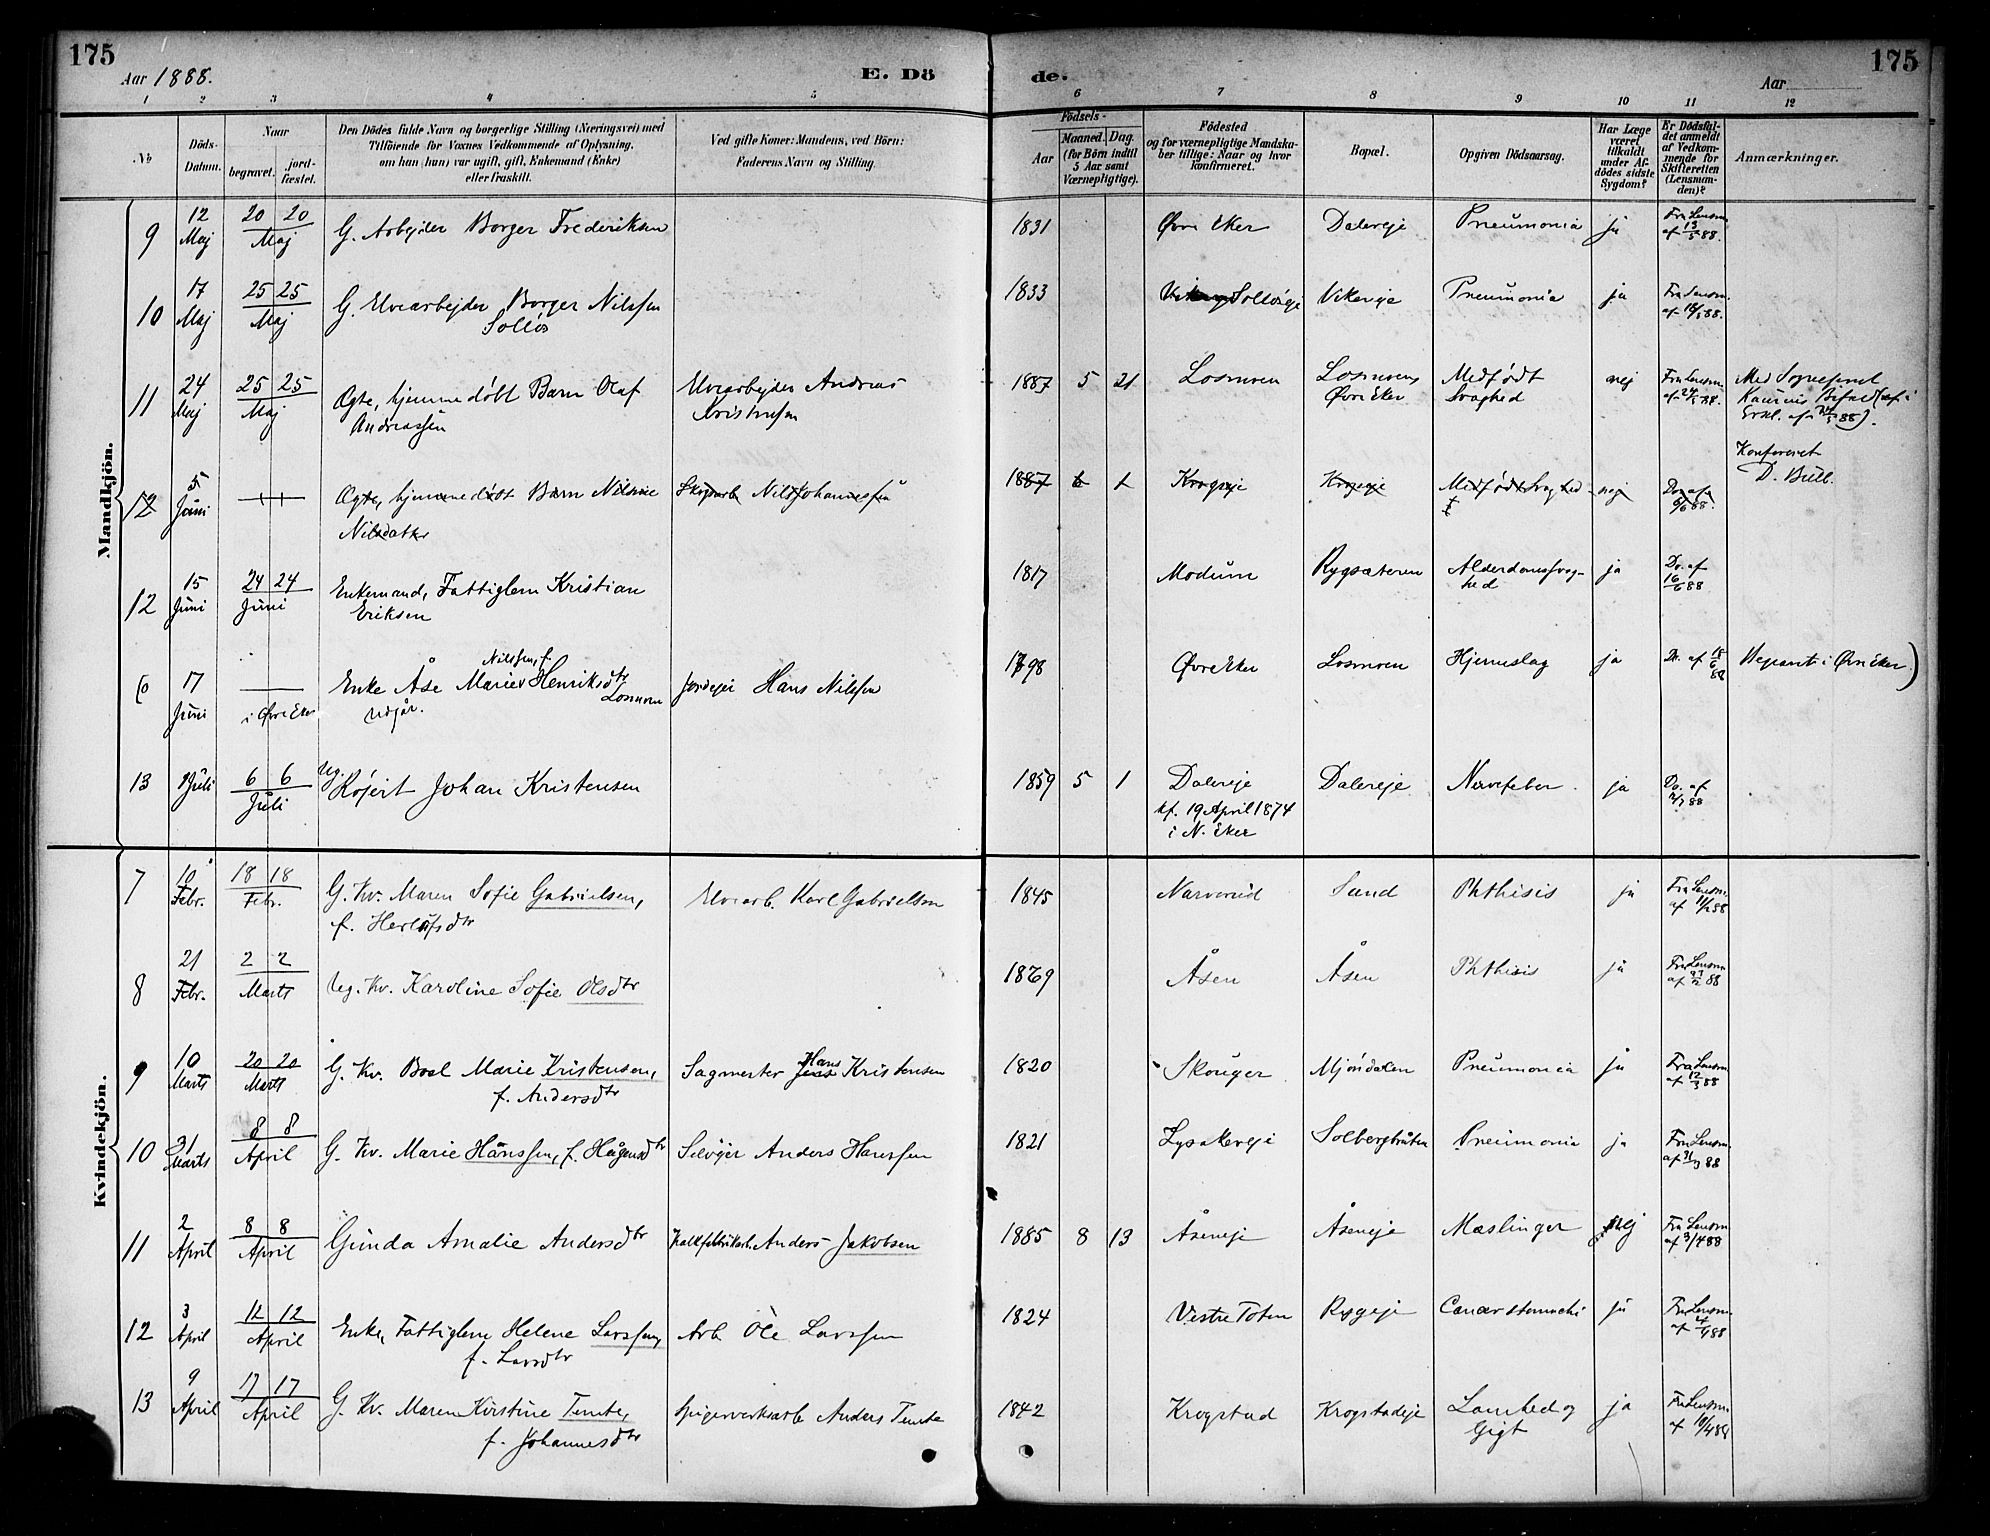 175
Aar 1888.
E. Dö
de.
Aar
175
1 2 3 4 5 6 7 8 9 10 11 12
No
Döds-Datum.
Naar
begravet.
jord-fæstet.
Den Dödes fulde Navn og borgerlige Stilling (Næringsvei) med
Tilföiende for Voxnes Vedkommende af Oplysning,
om han (hun) var ugift, gift, Enkemand (Enke)
eller fraskilt.
Ved gifte Koner: Mandens, ved Börn:
Faderens Navn og Stilling.
Födsels-
Aar
Maaned. Dag.
(for Börn indtil
5 Aar samt
Værnepligtige).
Födested
og for værnepligtige Mandska-
ber tillige: Naar og hvor
konfirmeret.
Bopæl.
Opgiven Dödsaarsag.
Har Læge
været
tilkaldt
under Af-
dödes sidste
Sygdom?
Er Dödsfal-
det anmeldt
af Vedkom-
mende for
Skifteretten
(Lensman-
den)?
Anmærkninger.
Mandkjön.
9 12 Maj 20 20 Maj G. Arbejder Borger Frederiksen 1831 Øvre Eker Dalereje Pneumonia ja Fra Lensm. af 13/5 88.
10 17 Maj 25 25 Maj G. Elvearbejder Borger Nilssen
Solløs 1833 Solløseje Vikereje Pneumonia ja Fra Lensm. af 18/5 88.
11 24 Maj 25 25 Maj Ægte, hjemmedøbt Barn Olaf
Andreassen Elvearbejder Andreas
Kristensen 1887 5 21 Losmoen Losmoens
Øvre Eker Medfødt
Svaghed nej Fra Lensm. af 24/5 88. Med Sognepræst
Erkl. af 24/5 88).
12 5 Juni Ægte, hjemmedøbt Barn Nilsine
Nilsdatter Nils Johannessen 1887 6 1 Krogseje Krogseje Medfødt Svaghed nej Do. af 6/6 88. Konfereret
D. Bull.
12 15 Juni 24 24 Juni Enkemand, Fattiglem Kristian
Eriksen 1817 Modum Rygsæteren Alderdomssvag-
hed ja Do. af 16/6 88
6 17 Juni i Øvre Eker Nilssen, f.
Enke Åse Marie Henriksdtr
Losmoen
Udgår. Hans Nilssen 1798 Øvre Eker Losmoen Hjerneslag ja Do. af 18/6 88 i Øvre Eker.)
13 Juli 6 6 Juli Ug. Johan Kristensen 1859 5 1 Dalereje
kf. 19 April 1874
i N. Eker Dalereje Nervefeber. ja Do. af 2/7 88
Kvindekjön.
7 10 Febr. 18 18 Febr. G. Kv. Maren Sofie Gabrielsen,
f. Herlufsdtr Elvearb. Karl Gabrielsen 1845 Narverud Sand Phthisis ja Fra Lensm. af 11/2 88
8 21 Febr. 2 2 Marts Ug. Kv. Karoline Sofie Olsdtr 1869 Åsen Åsen Phthisis ja Fra Lensm. af 22/2 88
9 10 Marts 20 20 Marts G. Kv. Boel Marie Kristensen,
f. Andersdtr Sagmester Hans Kristensen 1820 Skouger Mjøndalen Pneumonia ja Fra Lensm. af 12/3 88
10 31 Marts 8 8 April G. Kv. Marie Hanssen, f. Hågensdtr Selvejer Anders Hanssen 1821 Lysakereje Solbergbråten Pneumonia ja Fra Lensm. af 31/3 88
11 2 April 8 8 April Gunda Amalie Andersdtr Anders Jakobsen 1885 8 13 Åseneje Åseneje Mæslinger nej Fra Lensm. af 3/4 88
12 3 April 12 12 April Enke, Fattiglem Helene Larssen,
f. Larsdtr Arb. Ole Larssen 1824 Vestre Toten Rygeje Cancer stomachi ja Fra Lensm. af 4/4 88
13 9 April 17 17 April G. Kv. Maren Kirstine Temte,
f. Johannesdtr Spigerverksarb. Anders Temte 1842 Krogstad Krogstadeje Lamhed og
Gigt ja Fra Lensm. af 10/4 88